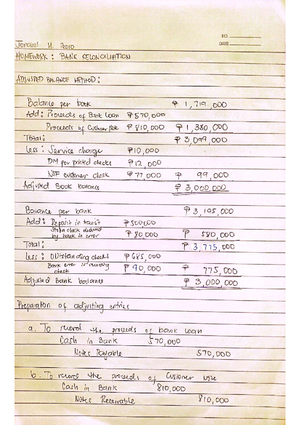 NO.
DATE
Jonaul M.
HOMEWORK : BANK RECONCILIATION
ADJUSTED BALANCE METHOD :
Balance per book ₱ 1,719,000
Add : Proceeds of Bank Loan ₱ 570,000
Proceeds of Customer Note ₱ 810,000 ₱ 1,380,000
Total : ₱ 3,099,000
less : Service charge ₱ 10,000
DM for printed checks ₱ 12,000
NSF customer check ₱ 77,000 ₱ 99,000
Adjusted Book balance ₱ 3,000,000
Balance per bank ₱ 3,195,000
Add : Deposit in transit ₱ 500,000
check deducted
by bank in error ₱ 80,000 ₱ 580,000
Total : ₱ 3,775,000
less : Outstanding checks ₱ 685,000
Bank error in
check ₱ 90,000 ₱ 775,000
Adjusted bank balance ₱ 3,000,000
Preparation of adjusting entries
a. To record the proceeds of bank loan
Cash in Bank 570,000
Notes Payable 570,000
b. To record the proceeds of customer note
Cash in Bank 810,000
Notes Receivable 810,000